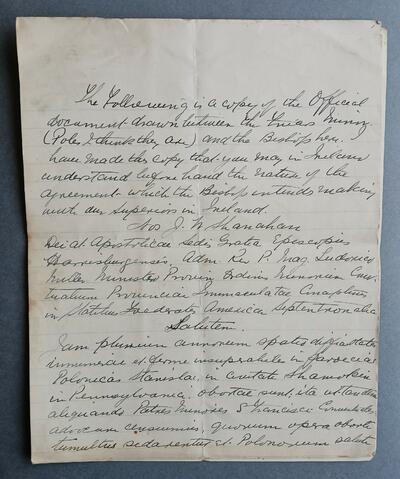 The Following is a copy of the Official
document drawn between the Friars Minor
(Poles I think they are) and the Bishop here. I
have made this copy that you may in Ireland
understand before hand the nature of the
agreement which the Bishop intends making
with our Superiors in Ireland.
Nos J. W. Shanahan
Dei et Apostolicae Sedis Gratia Episcopus
Harrisburgensis, Adm. Rev P. Mag. Ludovico
Miller Ministro Provin. Ordinis Minorum Conv-
tualium Provinciae Immaculatae Conceptionis
in Statibus Foederatis Americae Septentrionalis
Salutem.
Jam plurium annorum spatio difficultates
innumerae et ferme insuperabile in paroecia
Polonica S Stanislai, in civitate Shamokin
in Pennsylvania, obortae sunt, ita ut tandem
aliquando Patres Minores S Francisci Conventuales
advocare censuimus, quorum opera obortae
tumultus sedarentur et Polonorum saluti